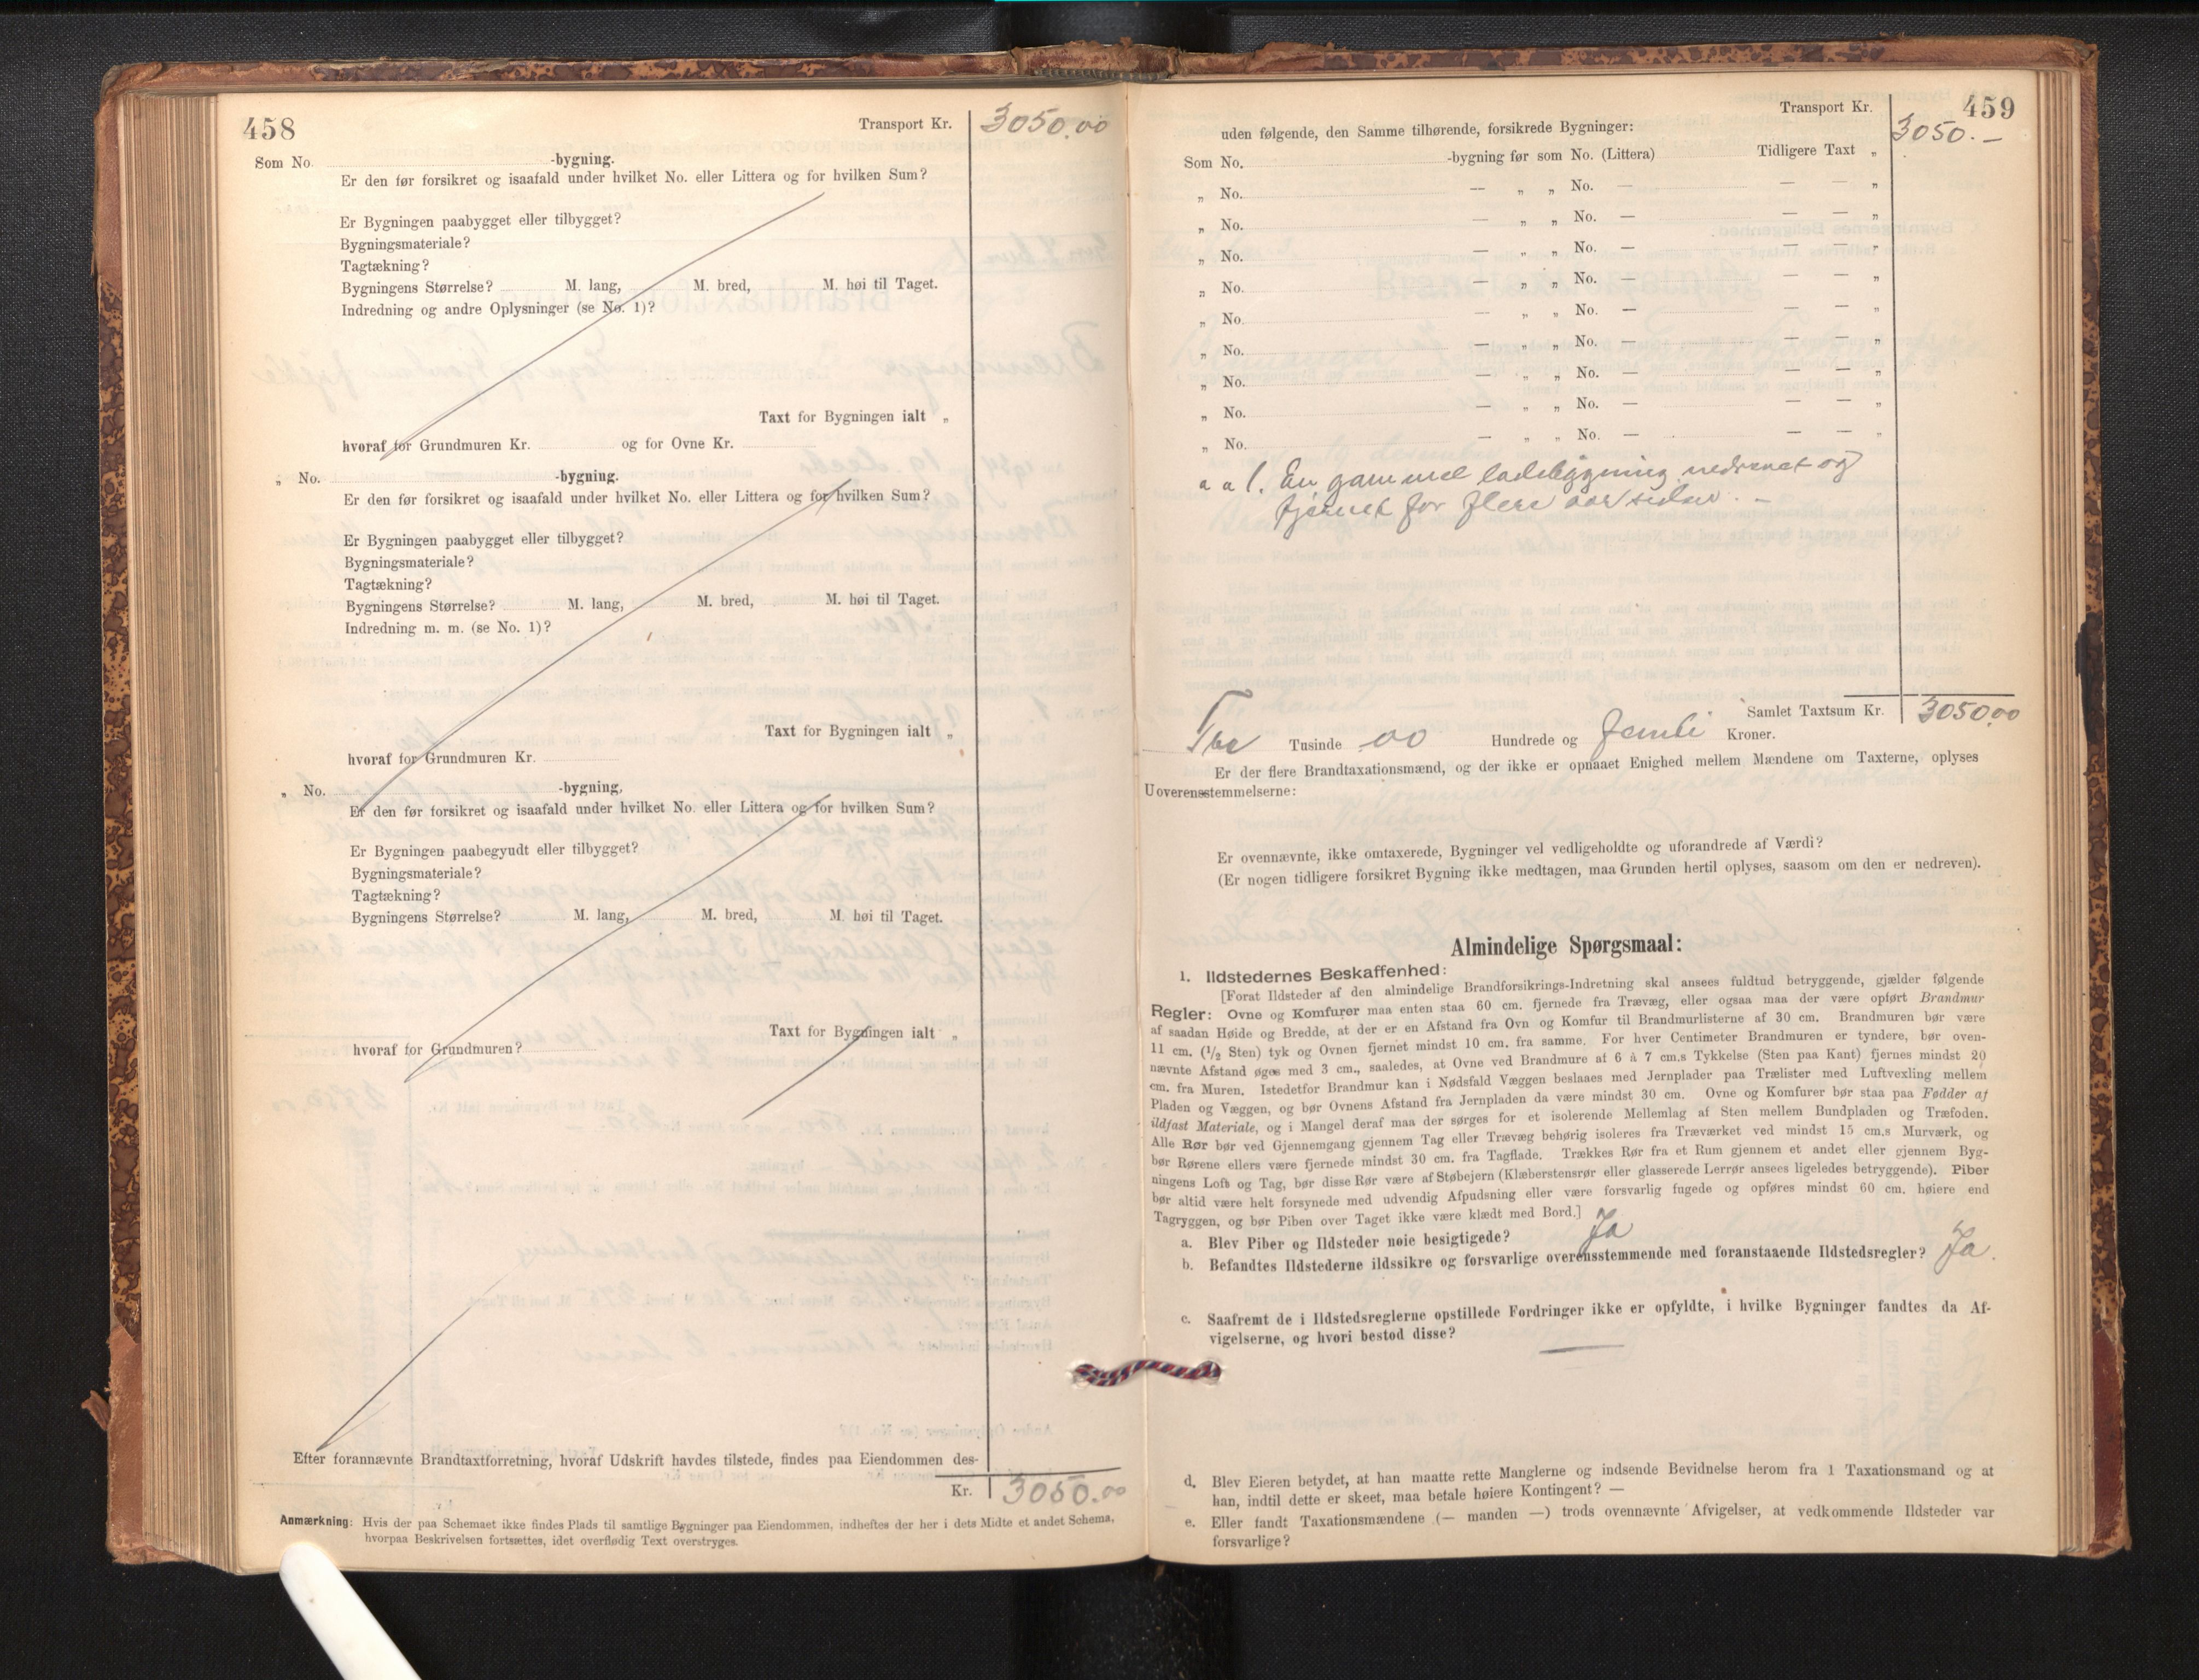 458
Transport Kr. 3050.00
Som No. -bygning.
Er den før forsikret og isaafald under hvilket No. eller Littera og for hvilken Sum?
Er Bygningen paabygget eller tilbygget?
Bygningsmateriale?
Tagtækning?
Bygningens Størrelse? M. lang, M. bred, M. høi til Taget.
Indredning og andre Oplysninger (se No. 1)?
Taxt for Bygningen ialt „
hvoraf for Grundmuren Kr. og for Ovne Kr.
„ No. -bygning.
Er den før forsikret og isaafald under hvilket No. eller Littera og for hvilken Sum?
Er Bygningen paabygget eller tilbygget?
Bygningsmateriale?
Tagtækning?
Bygningens Størrelse? M. lang, M. bred, M. høi til Taget.
Indredning m. m. (se No. 1)?
Taxt for Bygningen ialt „
hvoraf for Grundmuren Kr.
„ No. -bygning,
Er den før forsikret og isaafald under hvilket No. eller Littera og for hvilken Sum?
Er Bygningen paabegyudt eller tilbygget?
Bygningsmateriale?
Tagtækning?
Bygningens Størrelse? M. lang, M. bred, M. høi til Taget.
Taxt for Bygningen ialt „
hvoraf for Grundmuren?
Efter forannævnte Brandtaxtforretning, hvoraf Udskrift havdes tilstede, findes paa Eiendommen des-
Kr. 3050.00
Anmærkning: Hvis der paa Schemaet ikke findes Plads til samtlige Bygninger paa Eiendommen, indheftes der her i dets Midte et andet Schema,
hvorpaa Beskrivelsen fortsættes, idet overflødig Text overstryges.
459
Transport Kr. 3050.—
uden følgende, den Samme tilhørende, forsikrede Bygninger:
Som No. -bygning før som No. (Littera) Tidligere Taxt „
„ No. — „ „ No. — — — „
„ No. — „ „ No. — — — „
„ No. — „ „ No. — — — „
„ No. — „ „ No. — — — „
„ No. — „ „ No. — — — „
„ No. — „ „ No. — — — „
„ No. — „ „ No. — — — „
„ No. — „ „ No. — — — „
„ No. — „ „ No. — — — „
a a l. En gammel ladebygning nedrevet og
fjernet for flere aar siden. —
Samlet Taxtsum Kr. 3050.00
Tre Tusinde 00 Hundrede og femti Kroner.
Er der flere Brandtaxationsmænd, og der ikke er opnaaet Enighed mellem Mændene om Taxterne, oplyses
Uoverensstemmelserne:
Er ovennævnte, ikke omtaxerede, Bygninger vel vedligeholdte og uforandrede af Værdi?
(Er nogen tidligere forsikret Bygning ikke medtagen, maa Grunden hertil oplyses, saasom om den er nedreven).
Almindelige Spørgsmaal:
1. Ildstedernes Beskaffenhed:
[Forat Ildsteder af den almindelige Brandforsikrings-Indretning skal ansees fuldtud betryggende, gjælder følgende
Regler: Ovne og Komfurer maa enten staa 60 cm. fjernede fra Trævæg, eller ogsaa maa der være opført Brandmur
af saadan Høide og Bredde, at der er en Afstand fra Ovn og Komfur til Brandmurlisterne af 30 cm. Brandmuren bør være
11 cm. (1/2 Sten) tyk og Ovnen fjernet mindst 10 cm. fra samme. For hver Centimeter Brandmuren er tyndere, bør oven-
nævnte Afstand øges med 3 cm., saaledes, at Ovne ved Brandmure af 6 à 7 cm.s Tykkelse (Sten paa Kant) fjernes mindst 20
cm. fra Muren. Istedetfor Brandmur kan i Nødsfald Væggen beslaaes med Jernplader paa Trælister med Luftvexling mellem
Pladen og Væggen, og bør Ovnens Afstand fra Jernpladen da være mindst 30 cm. Ovne og Komfurer bør staa paa Fødder af
ildfast Materiale, og i Mangel deraf maa der sørges for et isolerende Mellemlag af Sten mellem Bundpladen og Træfoden.
Alle Rør bør ved Gjennemgang gjennem Tag eller Trævæg behørig isoleres fra Træværket ved mindst 15 cm.s Murværk, og
bør Rørene ellers være fjernede mindst 30 cm. fra Tagflade. Trækkes Rør fra et Rum gjennem et andet eller gjennem Byg-
ningens Loft og Tag, bør disse Rør være af Støbejern (Klæberstensrør eller glasserede Lerrør ansees ligeledes betryggende). Piber
bør altid være helt forsynede med udvendig Afpudsning eller være forsvarlig fugede og opføres mindst 60 cm. høiere end
Tagryggen, og bør Piben over Taget ikke være klædt med Bord.]
a. Blev Piber og Ildsteder nøie besigtigede? Ja
b. Befandtes Ildstederne ildssikre og forsvarlige overensstemmende med foranstaaende Ildstedsregler? Ja.
c. Saafremt de i Ildstedsreglerne opstillede Fordringer ikke er opfyldte, i hvilke Bygninger fandtes da Af-
vigelserne, og hvori bestod disse? —
d. Blev Eieren betydet, at han maatte rette Manglerne og indsende Bevidnelse herom fra 1 Taxationsmand og at
han, indtil dette er skeet, maa betale høiere Kontingent? —
e. Eller fandt Taxationsmændene (— manden —) trods ovennævnte Afvigelser, at vedkommende Ildsteder var
forsvarlige?